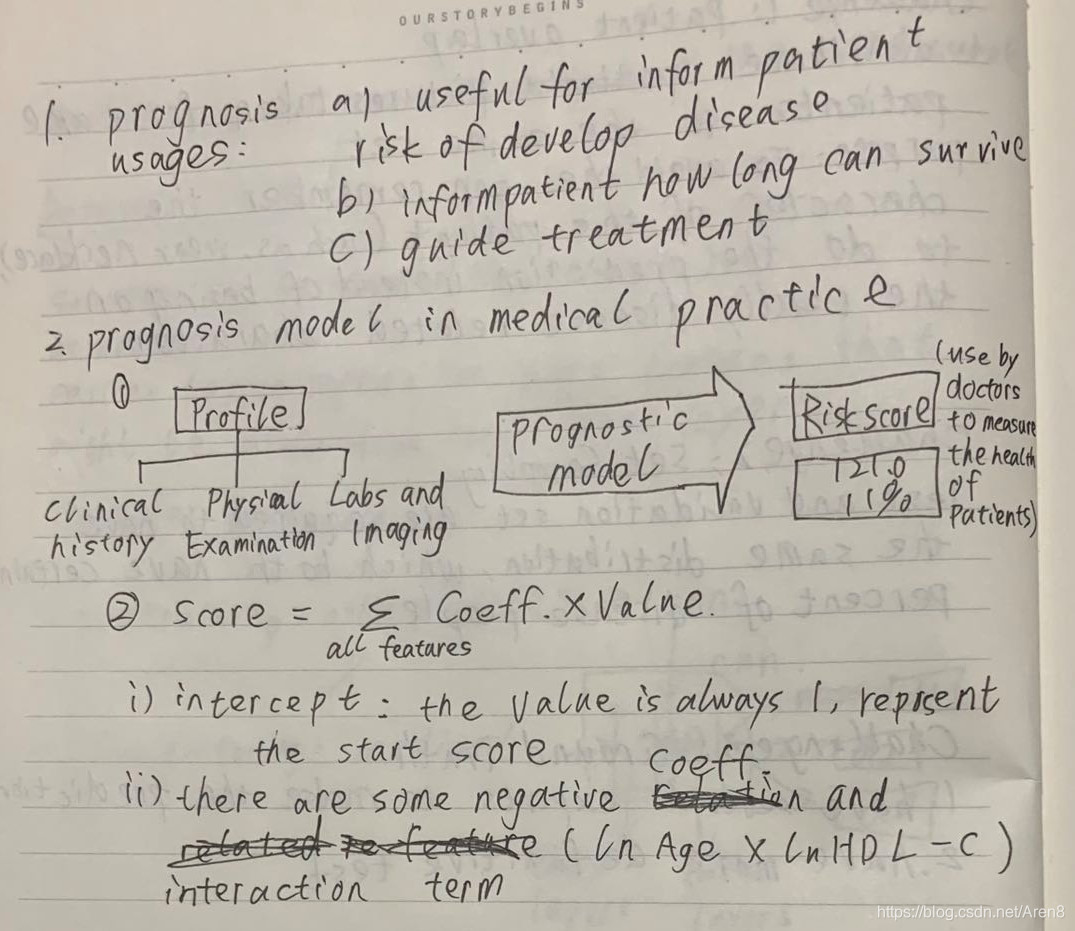 OURSTORYBEGINS
1. prognosis a) useful for inform patient
usages: risk of develop disease
b) inform patient how long can survive
c) guide treatment
2. prognosis model in medical practice
①
Profile
Clinical history
Physical Examination
Labs and Imaging
prognostic
model
Risk score
121.0
11%
(use by
doctors
to measure
the health
of
Patients)
② score = Σ Coeff. × Value.
all features
i) intercept: the value is always 1, reprsent
the start score
ii) there are some negative coeff. and
(ln Age × ln HDL-C)
interaction term
https://blog.csdn.net/Aren8